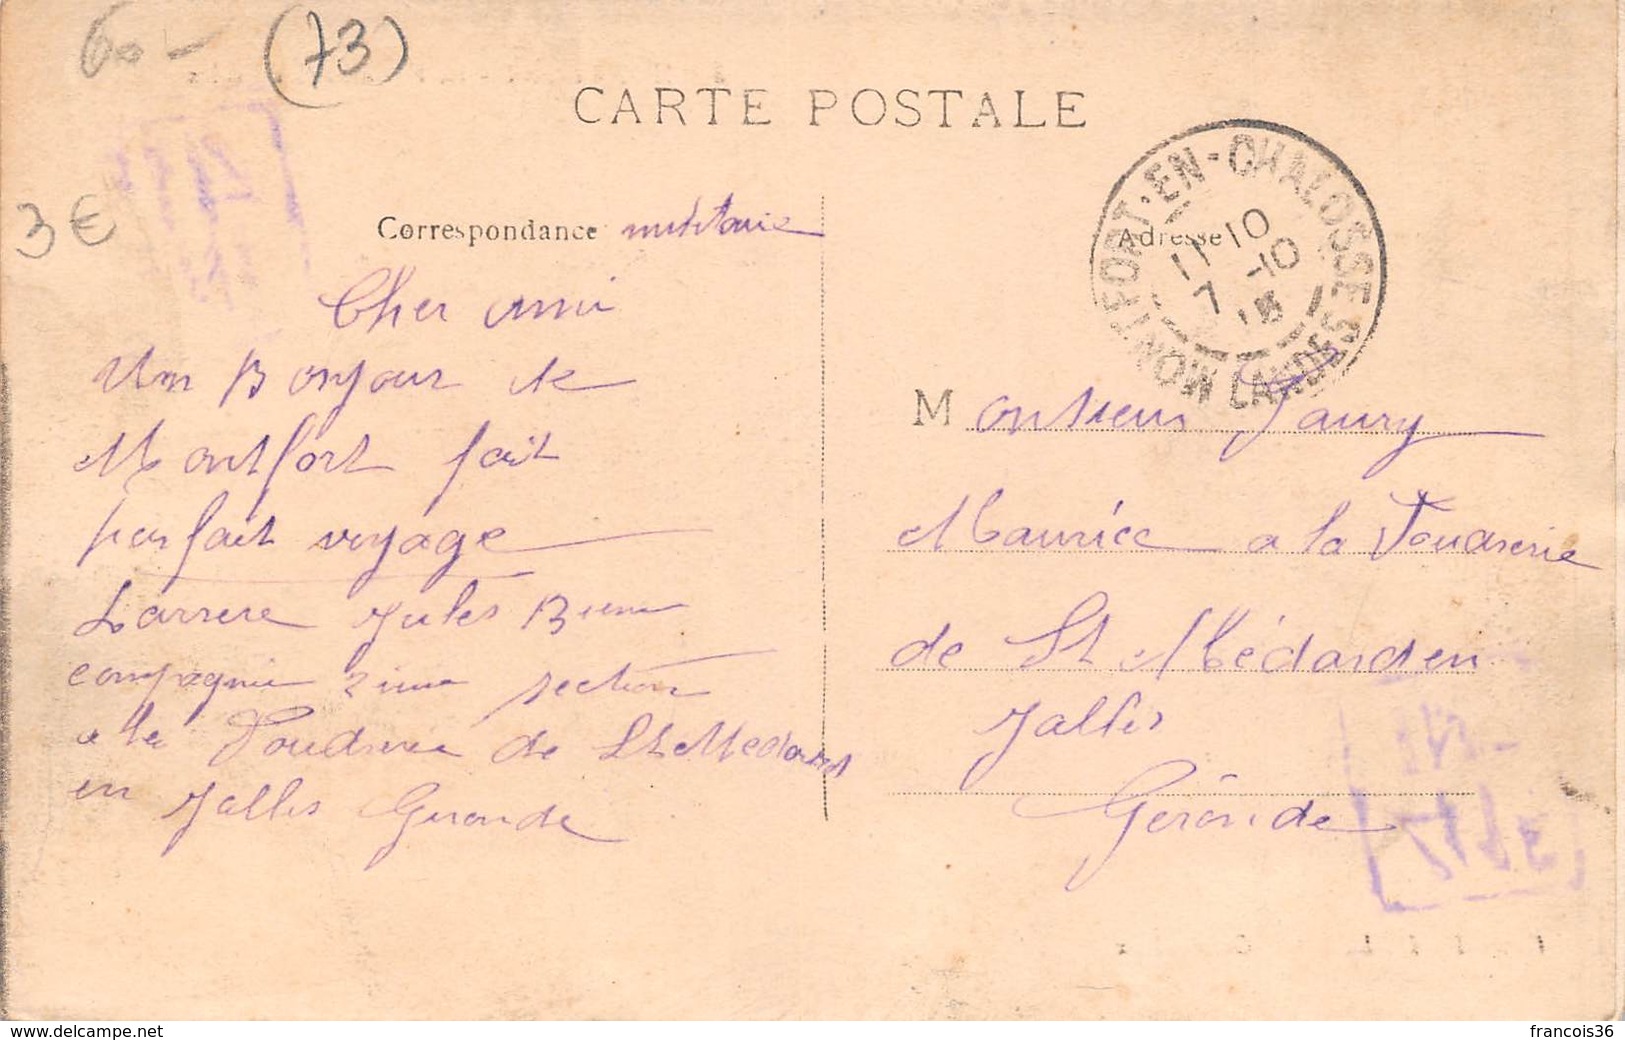 60 -
(73)
CARTE POSTALE
3 €
Correspondance militaire
Adresse
MONTFORT-EN-CHALOSSE
LANDES
11·10
7 -10
Cher ami
Un Bonjour de
Montfort fait
parfait voyage
Larrere Jules Bieme
compagnie 2ieme section
a la Poudrerie de St Medard
en Jalles Gironde
Monsieur Jaury
Maurice a la Poudrerie
de St Médard en
Jalles
Gironde
www.delcampe.net
francois36